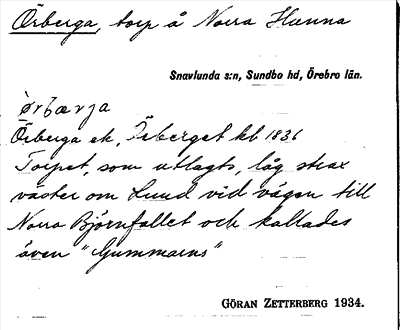 Örberga, torp å Norra Hanna
Snavlunda s:n, Sundbo hd, Örebro län.
ørbærja
Örberga ek, Örberget kb 1836
Torpet, som utlagts, låg strax
väster om Lund vid vägen till
Norra Björnfallet och kallades
även "Gummarns"
GÖRAN ZETTERBERG 1934.